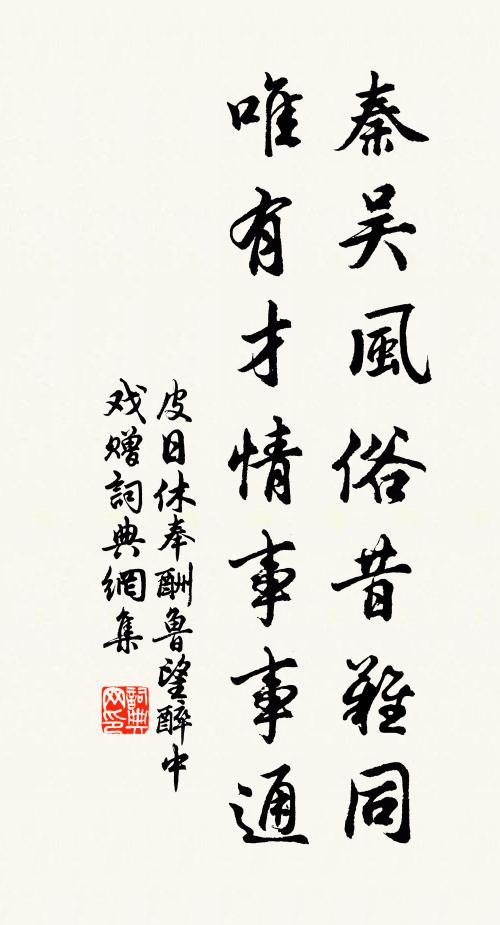 秦吴風俗昔難同
唯有才情事事通
皮日休奉酬魯望醉中
戏赠詞典網集
詞典网印